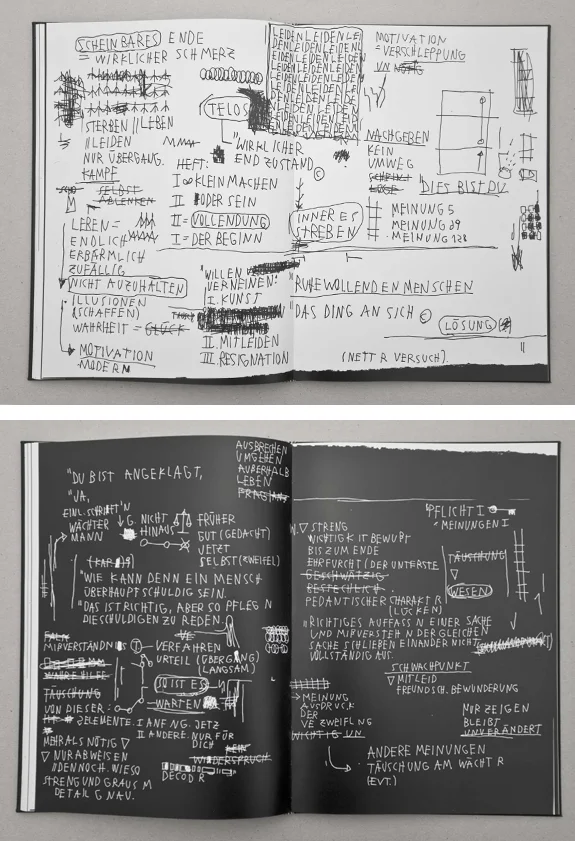 SCHEINBARES ENDE
= WIRKLICHER SCHMERZ
STERBEN || LEBEN
|| LEIDEN
NUR ÜBERGANG.
KAMPF
SELBST
ABLENKEN
LEBEN =
ENDLICH
ERBÄRMLICH
ZUFÄLLIG
NICHT AUFZUHALTEN
ILLUSIONEN
(SCHAFFEN)
WAHRHEIT = GLÜCK
MOTIVATION
MODERN
TELOS
"WIRKLICHER
ENDZUSTAND
HEFT:
I ∞ KLEIN MACHEN
II ODER SEIN
II = VOLLENDUNG
I = DER BEGINN
"WILLEN
VERNEINEN:
I. KUNST
II. MITLEIDEN
III. RESIGNATION
LEIDENLEIDENLEI
DENLEIDENLEIDENL
EIDENLEIDENLEIDEN
MOTIVATION
= VERSCHLEPPUNG
UN NÖTIG
NACHGEBEN
KEIN
UMWEG
LÜGE
DIES BIST DU
INNERES
STREBEN
MEINUNG 5
MEINUNG 29
MEINUNG 128
"RUHE WOLLENDEN MENSCHEN
"DAS DING AN SICH
LÖSUNG
(NETT R VERSUCH).
AUSBRECHEN
UMGEHEN
AUßERHALB
LEBEN
"DU BIST ANGEKLAGT,
"JA,
WÄCHTER
MANN
G. NICHT
HINAUS
FRÜHER
GUT (GEDACHT)
JETZT
SELBST (ZWEIFEL)
"WIE KANN DENN EIN MENSCH
ÜBERHAUPT SCHULDIG SEIN.
"DAS IST RICHTIG, ABER SO PFLEG N
DIE SCHULDIGEN ZU REDEN.
VERFAHREN
URTEIL (ÜBERGANG)
(LANGSAM)
SO IST ES
WARTEN
TÄUSCHUNG
VON DIESER:
2 ELEMENTE. I ANF NG. JETZ
II ANDERE. NUR FÜR
DICH
MEHR ALS NÖTIG ▽
▽ NUR ABWEISEN
|| DENNOCH. WIESO
STRENG UND GRAUS M
DETAIL G NAU.
WIDERSPRUCH
DECOD R
▽ STRENG
WICHTIGK IT BEWUßT
BIS ZUM ENDE
EHRFURCHT (DER UNTERSTE
GESCHWÄTZIG
BESTECHLICH
PEDANTISCHER CHARAKT R
(LÜCKEN)
"RICHTIGES AUFFASS N EINER SACHE
UND MIßVERSTEH N DER GLEICHEN
SACHE SCHLIEßEN EINANDER NICHT
VOLLSTÄNDIG AUS
"PFLICHT I
= MEINUNGEN I
TÄUSCHUNG
▽
WESEN
SCHWACHPUNKT
▽ MITLEID
FREUNDSCH. BEWUNDERUNG
→ MEINUNG
AUSDRUCK
DER
VE ZWEIFL NG
WICHTIG UN
NUR ZEIGEN
BLEIBT
UNVERÄNDERT
ANDERE MEINUNGEN
TÄUSCHUNG AM WÄCHT R
(EVT.)